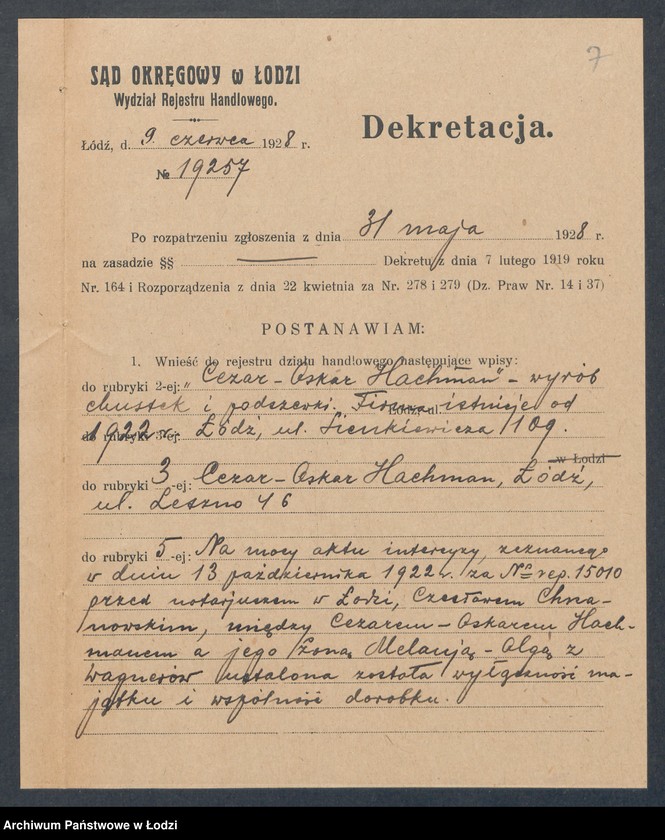 7
SĄD OKRĘGOWY w ŁODZI
Wydział Rejestru Handlowego.
Dekretacja.
Łódź, d. 9. czerwca 1928 r.
№ 19257
Po rozpatrzeniu zgłoszenia z dnia 31 maja 1928 r.
na zasadzie §§ — Dekretu z dnia 7 lutego 1919 roku
Nr. 164 i Rozporządzenia z dnia 22 kwietnia za Nr. 278 i 279 (Dz. Praw Nr. 14 i 37)
POSTANAWIAM:
1. Wnieść do rejestru działu handlowego następujące wpisy:
do rubryki 2-ej: „Cezar-Oskar Hachman" - wyrób
chustek i podszewki. Firma istnieje od
1922 r. Łódź, ul. Sienkiewicza 109.
w Łodzi
do rubryki 3-ej: Cezar-Oskar Hachman, Łódź,
ul. Leszno 46
do rubryki 5-ej: Na mocy aktu intercyzy, zeznanego
w dniu 13 października 1922 r. za Nr rep. 15010
przed notarjuszem w Łodzi, Czesławem Chrza-
nowskim, między Cezarem-Oskarem Hach-
manem a jego żoną Melanją-Olgą z
Wagnerów ustalona została wyłączność ma-
jątku i wspólność dorobku.
Archiwum Państwowe w Łodzi